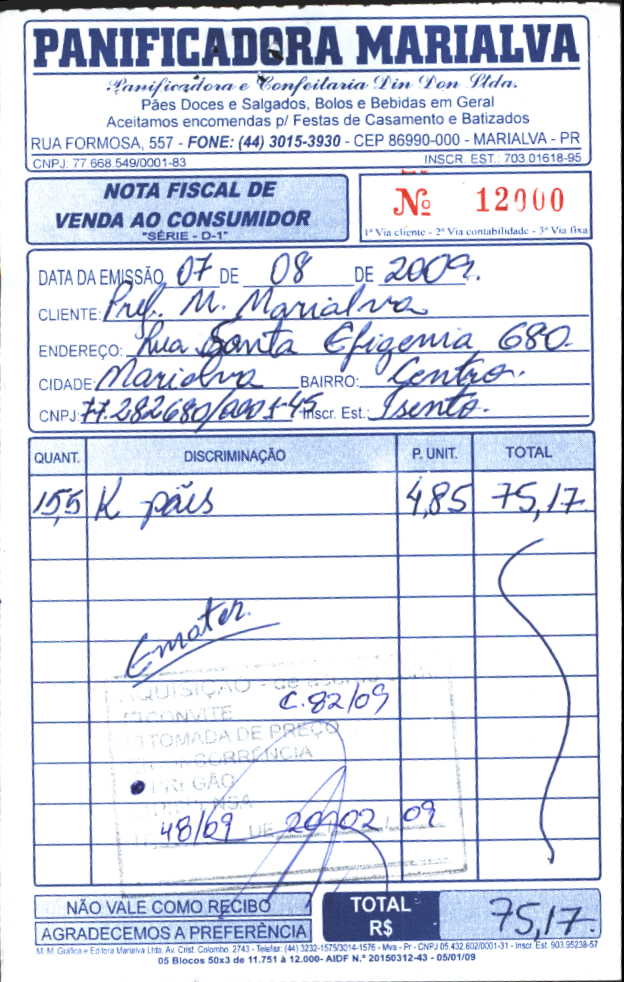 PANIFICADORA MARIALVA
Panificadora e Confeitaria Din Don Ltda.
Pães Doces e Salgados, Bolos e Bebidas em Geral
Aceitamos encomendas p/ Festas de Casamento e Batizados
RUA FORMOSA, 557 - FONE: (44) 3015-3930 - CEP 86990-000 - MARIALVA - PR
CNPJ: 77 668 549/0001-83 INSCR. EST.: 703.01618-95
NOTA FISCAL DE
VENDA AO CONSUMIDOR
"SÉRIE - D-1"
Nº 12000
1ª Via cliente - 2ª Via contabilidade - 3ª Via fixa
DATA DA EMISSÃO 07 DE 08 DE 2009.
CLIENTE: Pref. M. Marialva
ENDEREÇO: Rua Santa Efigenia 680.
CIDADE: Marialva BAIRRO: Centro.
CNPJ: 77.282680/0001-45 Inscr. Est.: Isento.
QUANT. DISCRIMINAÇÃO P. UNIT. TOTAL
15,5 K pães 4,85 75,17
Emater.
AQUISIÇÃO
C.82/09
CONVITE
TOMADA DE PREÇO
CONCORRÊNCIA
PREGÃO
48/69 DE 20/02/09
NÃO VALE COMO RECIBO
AGRADECEMOS A PREFERÊNCIA
TOTAL
R$ 75,17.
M. M. Gráfica e Editora Marialva Ltda. Av. Crist. Colombo, 2743 - Telefax: (44) 3232-1575/3014-1576 - Mva - Pr - CNPJ 05.432.602/0001-31 - Inscr. Est. 903.95238-57
05 Blocos 50x3 de 11.751 à 12.000- AIDF N.º 20150312-43 - 05/01/09